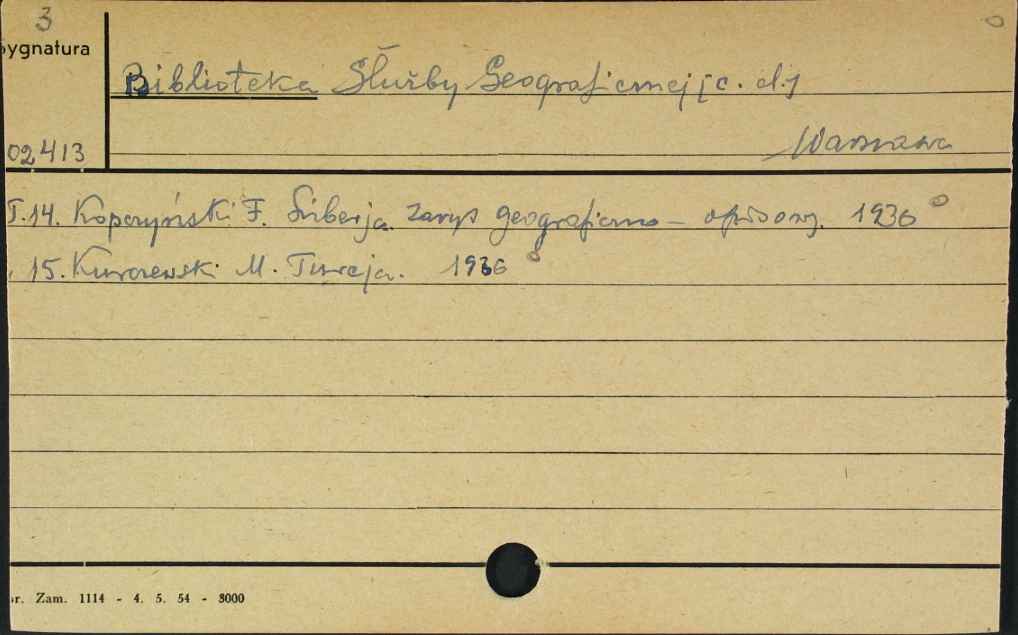 3
Sygnatura
Biblioteka Służby Geograficznej [c. d.]
02413
Warszawa
T.14. Kopczyński F. Siberja. Zarys geograficzno - opisowy. 1936
15. Kurczewski M. Turcja. 1936
r. Zam. 1114 - 4. 5. 54 - 8000